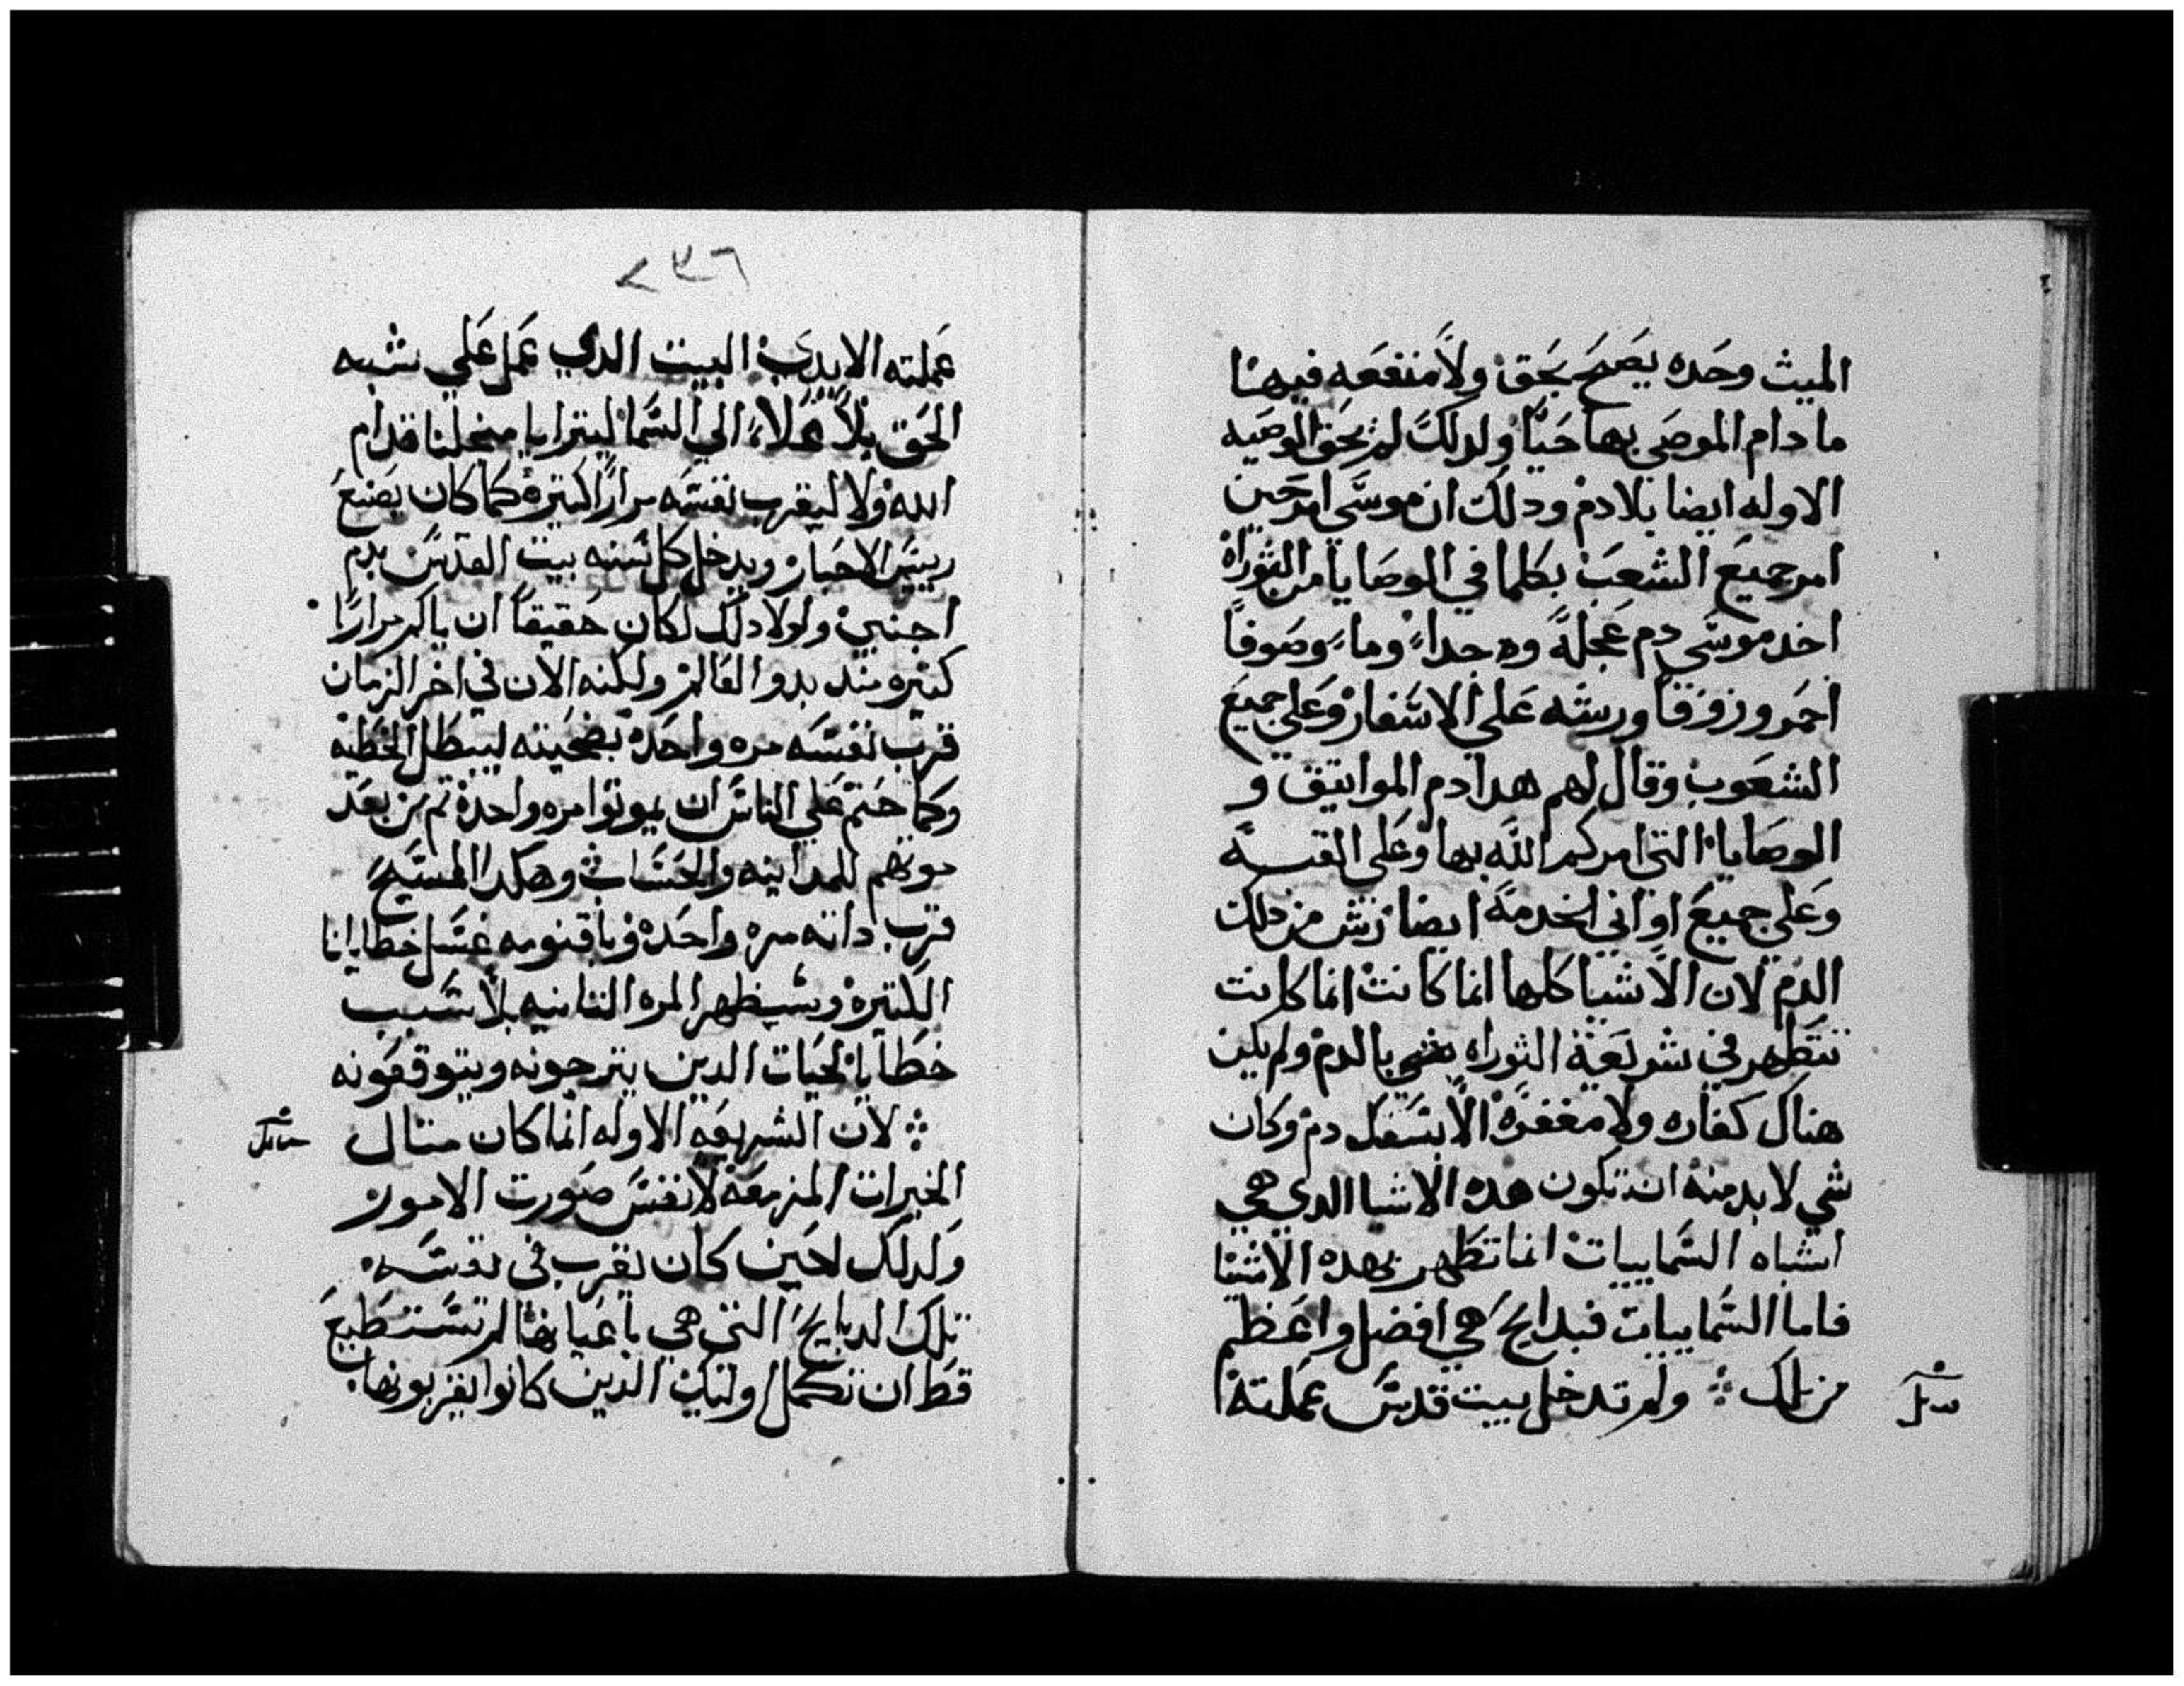 الميث وحده يصح بحق ولا منفعه فيها
ما دام الموصي بها حيا ولدلك لم يحق الوصيه
الاوله ايضا بلا دم ودلك ان موسي امر حين
امر جميع الشعب بكلما في الوصايا من الثوراه
اخد موسي دم عجله وه جداء وماء وصوفا
احمر وزوفا ورشه علي الاسفار وعلي جميع
الشعوب وقال لهم هدا دم المواتيق و
الوصايا التي امركم الله بها وعلي القبه
وعلي جميع اواني الخدمه ايضا رش من دلك
الدم لان الاشيا كلها انما كانت انما كانت
تتطهر في شريعة الثوراه بالدم ولم يكن
هناك كفاره ولا مغفره الا بسفك دم وكان
شي لا بد منه ان تكون هده الاشيا الدي هي
اشباه السماييات انما تطهر بهده الاشيا
فاما السماييات فبدبايح هي افضل واعظم
من تلك ولم تدخل بيت قدس عملته ا
٢٣٦
عملته الايدي البيت الدي عمل علي شبه
الحق بل علا الي السما ليترايا منجلنا قدام
الله ولا ليقرب نفسه مرارا كتيره كما كان يصنع
رييس الاحبار ويدخل كل سنه بيت القدس بدم
اجنبي ولولا دلك لكان حقيقا ان ياكر مرارا
كتيره مند بدو العالم ولكنه الان في اخر الزمان
قرب نفسه مره واحده بضحيته ليبطل الخطيه
وكما حتم علي الناس ان يموتوا مره واحده تم من بعد
موتهم للمداينه والحساب وهكدا المسيح
قرب داته مره واحده وباقنومه غسل خطايانا
الكتيره وسيظهر المره التانيه بلا سبب
خطايا لحيات الدين يترجونه ويتوقعونه
لان الشريعه الاوله انما كان متال
الخيرات المزمعه لا نفس صورت الامور
ولدلك لحين كان يقرب في نفسه
تلك الدبايح التي هي باعيانها لم تستطيع
قط ان تكمل اوليك الدين كانوا يقربونها